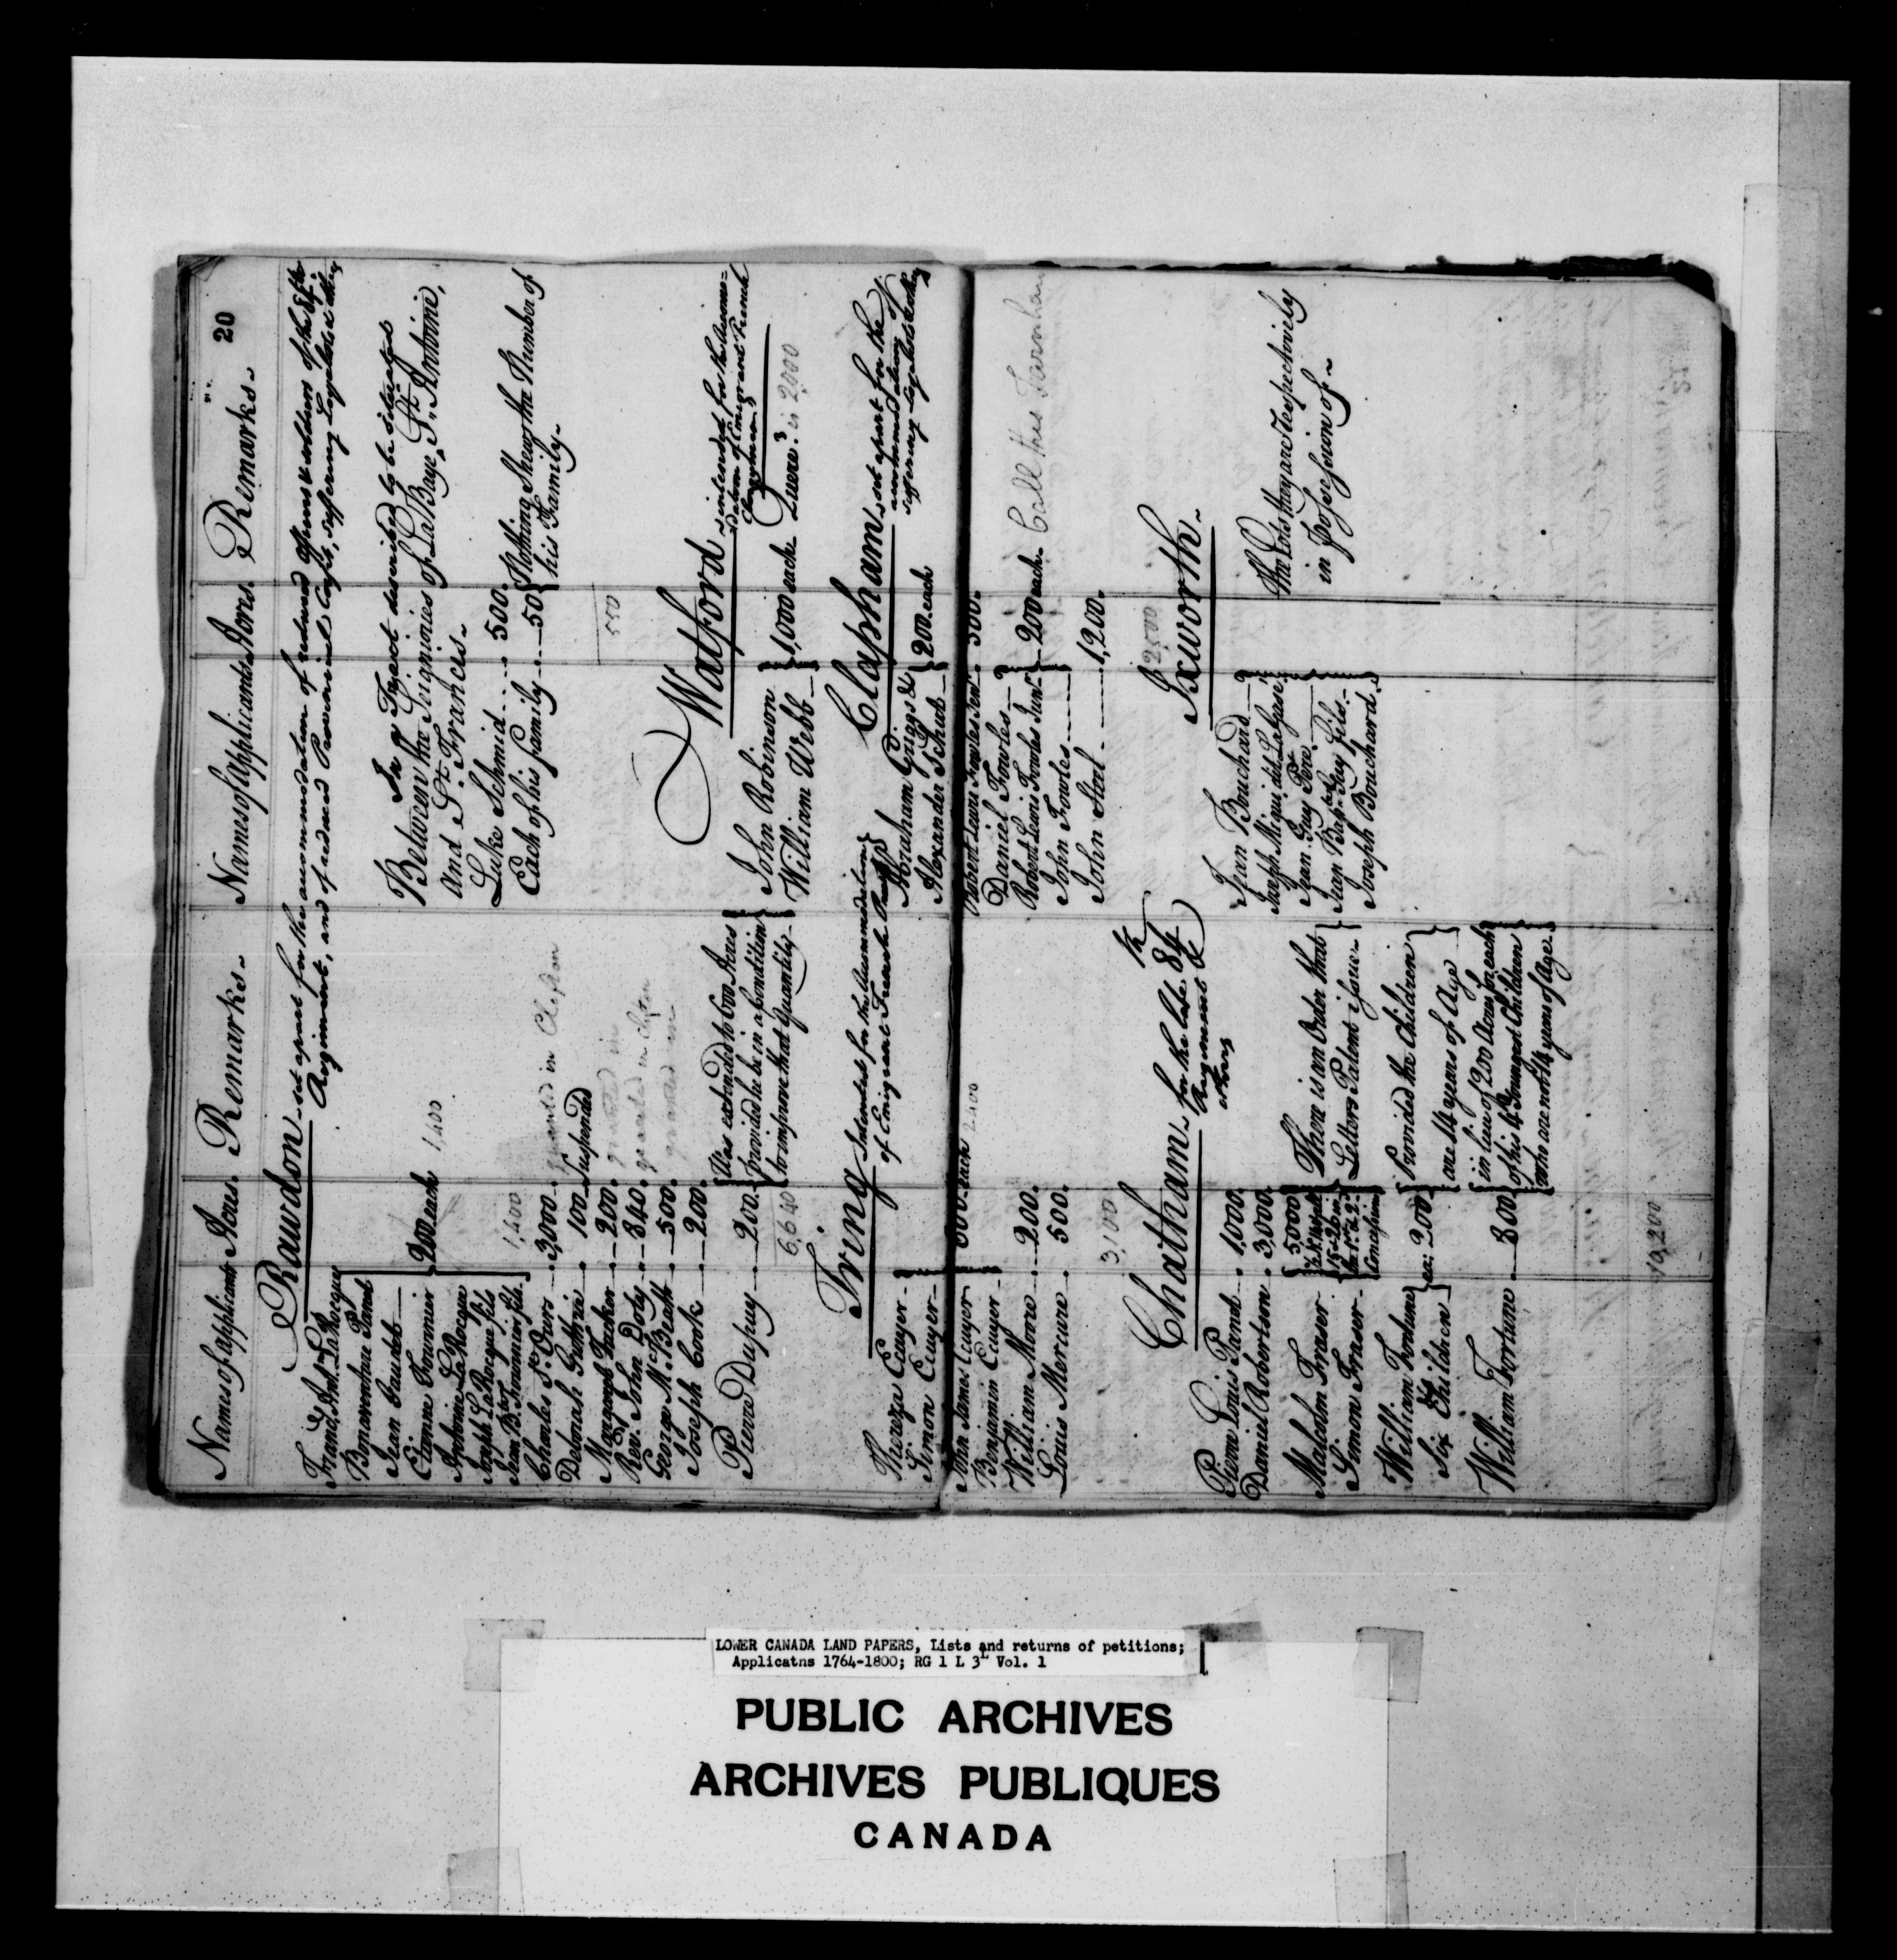 20
Names of Applicants Acres. Remarks.
Rawdon set apart for the accommodation of reduced officers & soldiers of the 84th
Regiment, and of reduced Provincial Corps, suffering Loyalists &
Franç. Ant. LaRocque
Bonaventure Panet
Jean Gaudet
Etienne Fournier
Antoine LaRocque
Joseph LaRocque fils
200 each 1,400
Jean Bte. fils
1,400
Charles St. Ours 3,000. granted in Clifton
Deborah Guthrie 100 Suspended
Margaret 200. granted in
Rev. John Doty 840. granted in Clifton
George McBeath 500. granted in
Joseph Cook 200.
Pierre Dupuy 200. Was extended to 600 Acres
provided he be in a Condition
to improve that Quantity
6,640
Tring Intended for the Accommodation
of Emigrant French
Thereza Ecuyer
Simon Ecuyer
John James Ecuyer 600 each 2400
Benjamin Ecuyer
William Monro 200.
Louis Mercure 500.
3,100
Chatham for the late 84th
Regiment &
Pierre Louis Panet 1,000.
Daniel Robertson 3,000.
Malcolm Fraser
Simon Fraser
5,000
Concessions
There is an Order that
Letters Patent issue
William Fortune
& his
Six Children
ea: 200
Provided the Children
are 14 years of Age
William Fortune 800
in lieu of 200 Acres for each
of his 4 Youngest Children
who are not 14 years of Age.
10,200
Names of Applicants Acres. Remarks.
In a Tract described to be situated
Between the Seigniories of La Baye, St. Antoine,
and St. Frances
Luke Schmid 500.
Each of his family 50
Nothing Shews the Number of
his Family
550
Watford intended for the Accomo=
dation of Emigrant French
Clergymen
John Robinson
William Webb
1,000 each Quere? is 2,000
Clapham set apart for the
accommodation of
suffering Loyalists
Abraham Griggs &
Alexander Shut
200 each
Robert Lewis Fowles Senr. 500.
Daniel Fowles
Robert Lewis Fowles Junr.
John Fowles
200 each Call this Farnham
John Steel 1,200.
2,500
Ixworth
Jean Bouchard
Joseph Migui dit LaGasse
Jean Guy Pere
Jean Bapte. Guy fils
Joseph Bouchard
The Lots they are respectively
in Possession of
LOWER CANADA LAND PAPERS, Lists and returns of petitions;
Applicatns 1764-1800; RG 1 L 3L Vol. 1
PUBLIC ARCHIVES
ARCHIVES PUBLIQUES
CANADA